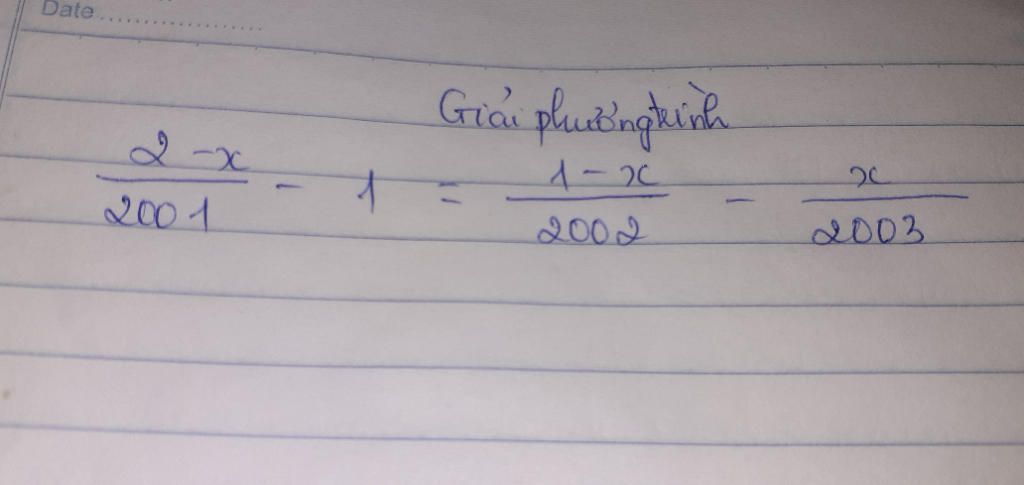 Date....................
Giải phương trình
2-x/2001 - 1 = 1-x/2002 - x/2003